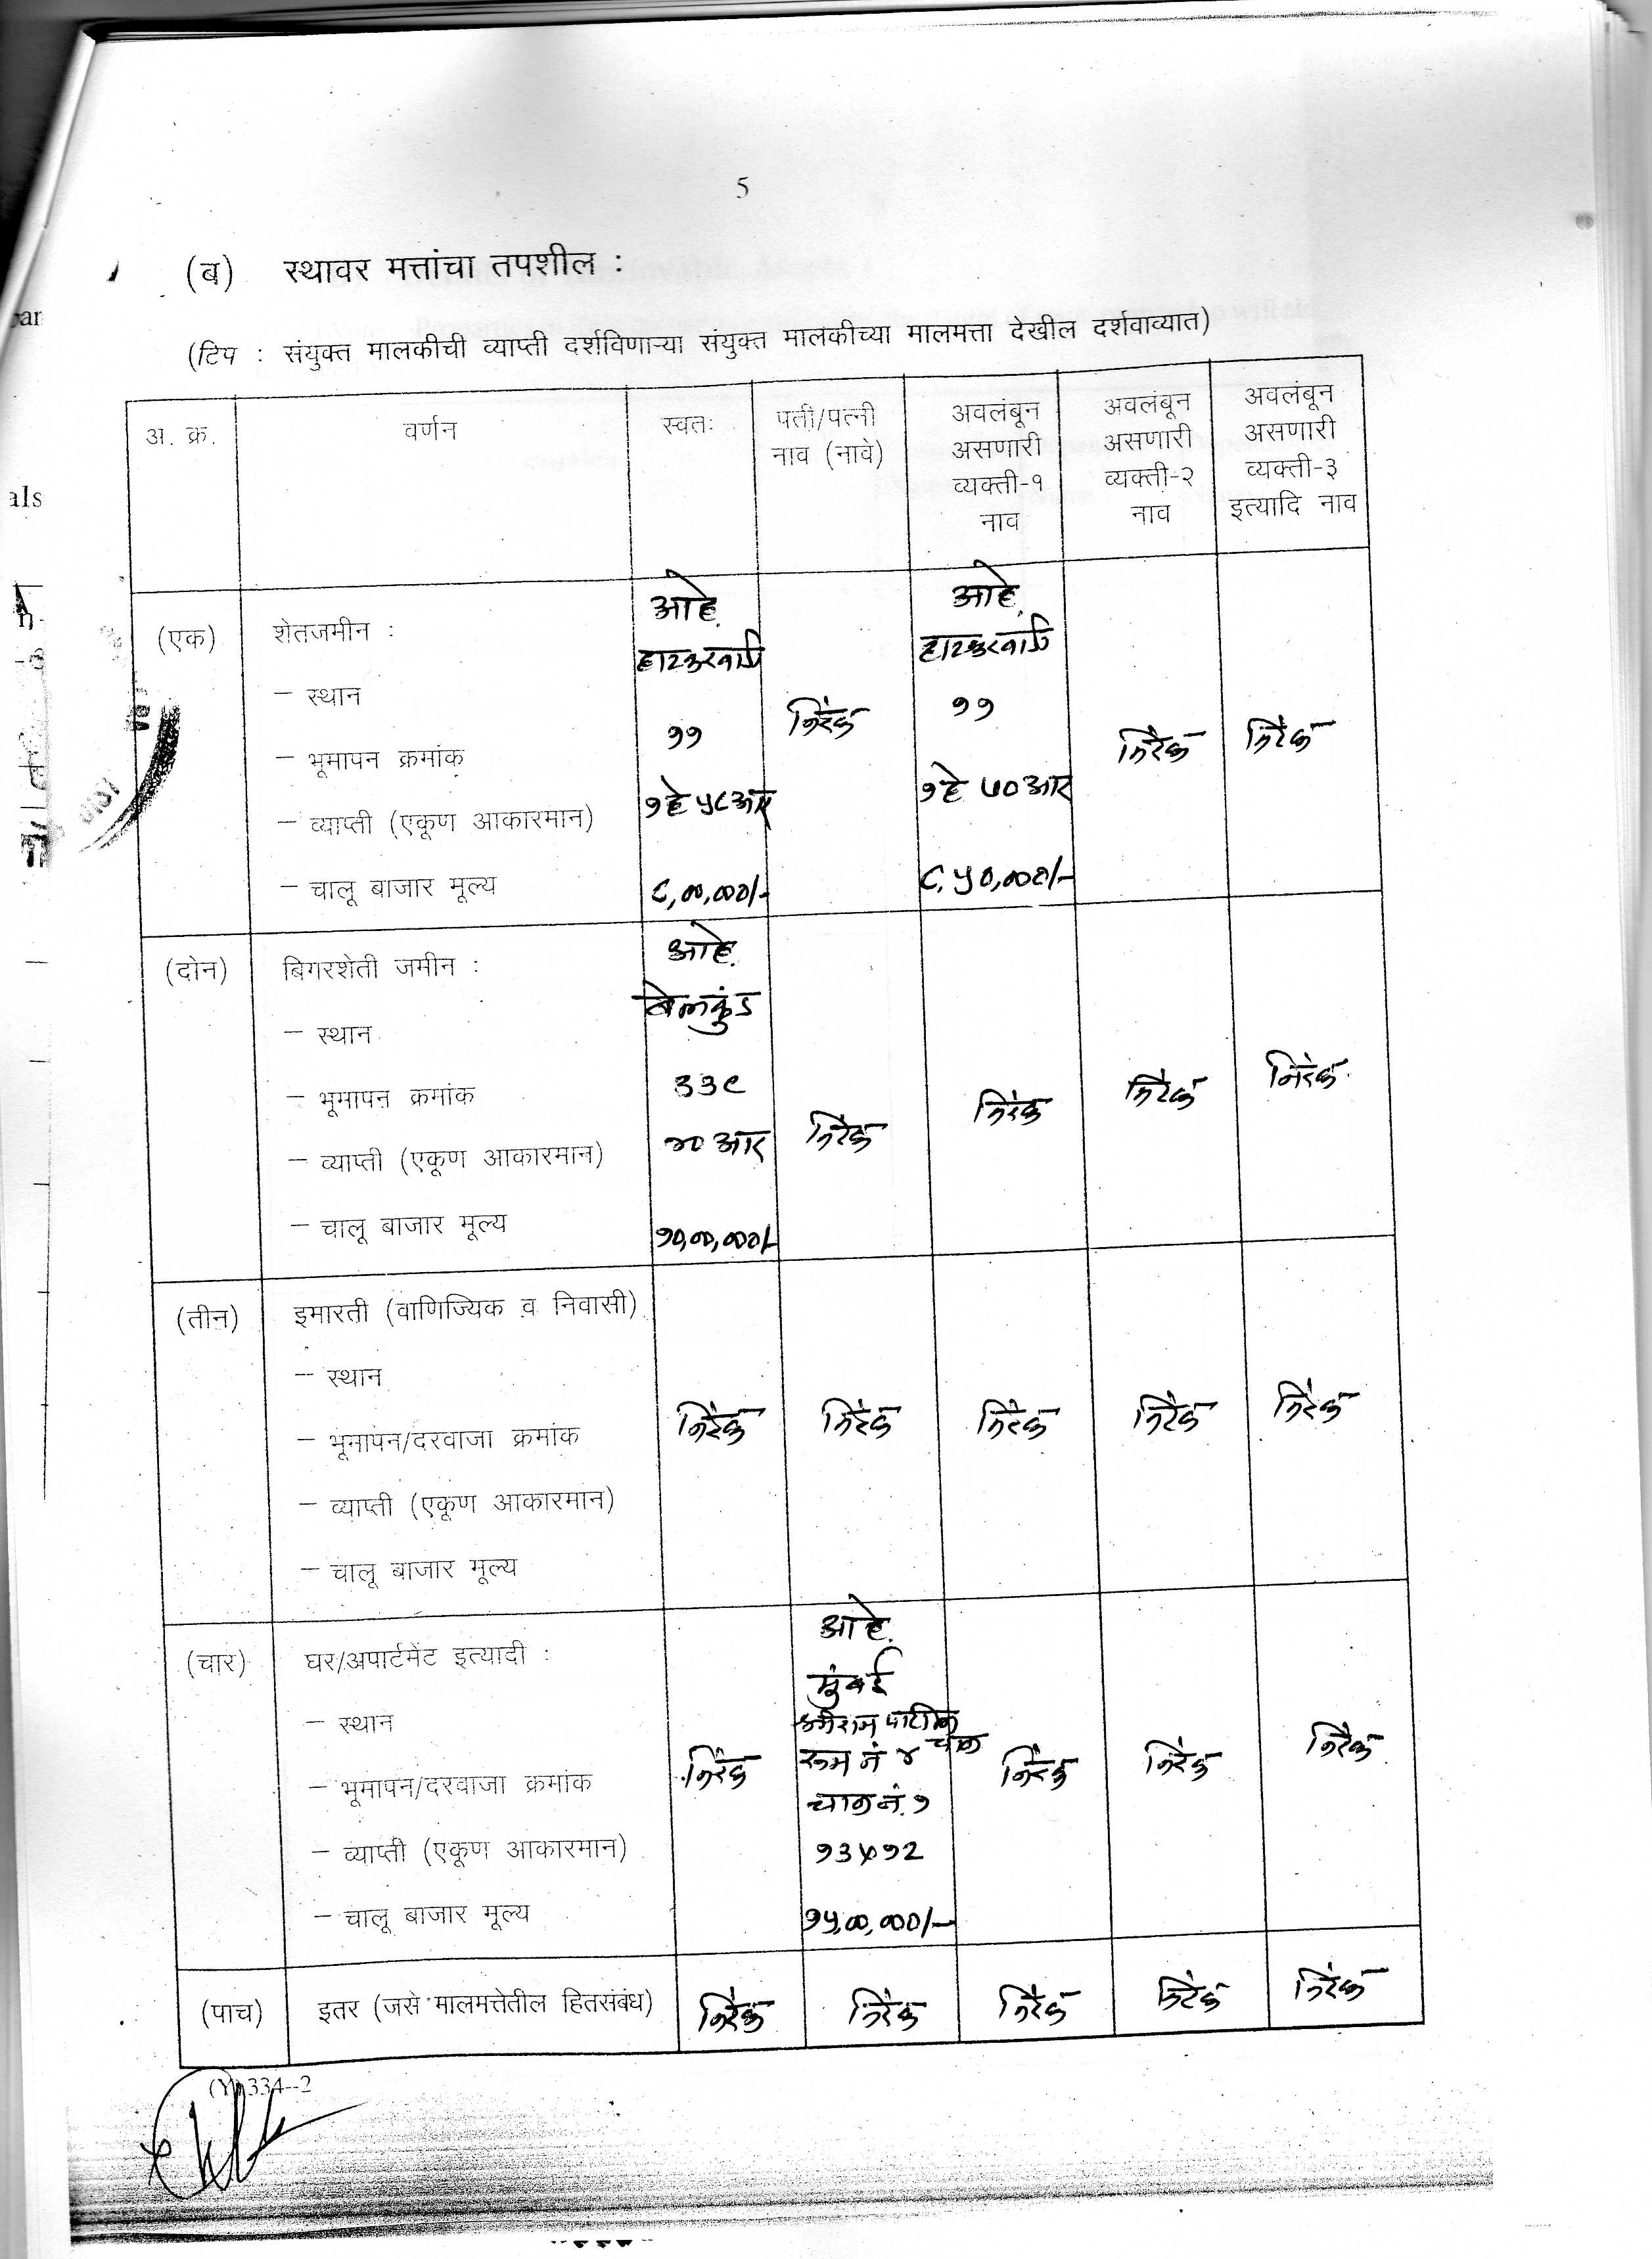 5
(ब) स्थावर मत्तांचा तपशील :
(टिप : संयुक्त मालकीची व्याप्ती दर्शविणाऱ्या संयुक्त मालकीच्या मालमत्ता देखील दर्शवाव्यात)
अ. क्र. वर्णन स्वतः पती/पत्नी नाव (नावे) अवलंबून असणारी व्यक्ती-१ नाव अवलंबून असणारी व्यक्ती-२ नाव अवलंबून असणारी व्यक्ती-३ इत्यादि नाव
(एक) शेतजमीन : आहे. आहे.
– स्थान हाटकरवाडी हाटकरवाडी
– भूमापन क्रमांक ११ निरंक ११ निरंक निरंक
– व्याप्ती (एकूण आकारमान) १हे ५८आर १हे ७०आर
– चालू बाजार मूल्य ८,००,०००/- ८,५०,०००/-
(दोन) बिगरशेती जमीन : आहे.
– स्थान बेलकुंड
– भूमापन क्रमांक ३३९ निरंक निरंक निरंक
– व्याप्ती (एकूण आकारमान) आर निरंक
– चालू बाजार मूल्य १०,००,०००/-
(तीन) इमारती (वाणिज्यिक व निवासी)
– स्थान
– भूमापन/दरवाजा क्रमांक निरंक निरंक निरंक निरंक निरंक
– व्याप्ती (एकूण आकारमान)
– चालू बाजार मूल्य
(चार) घर/अपार्टमेंट इत्यादी : आहे.
– स्थान मुंबई
पाटील चाळ
– भूमापन/दरवाजा क्रमांक निरंक रूम नं ४ निरंक निरंक निरंक
चाळ नं. १
– व्याप्ती (एकूण आकारमान) १३x१२
– चालू बाजार मूल्य १५,००,०००/-
(पाच) इतर (जसे मालमत्तेतील हितसंबंध) निरंक निरंक निरंक निरंक निरंक
(Y) 334--2
als